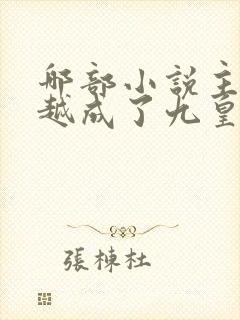 哪部小説主
越成了九皇
張棟杜